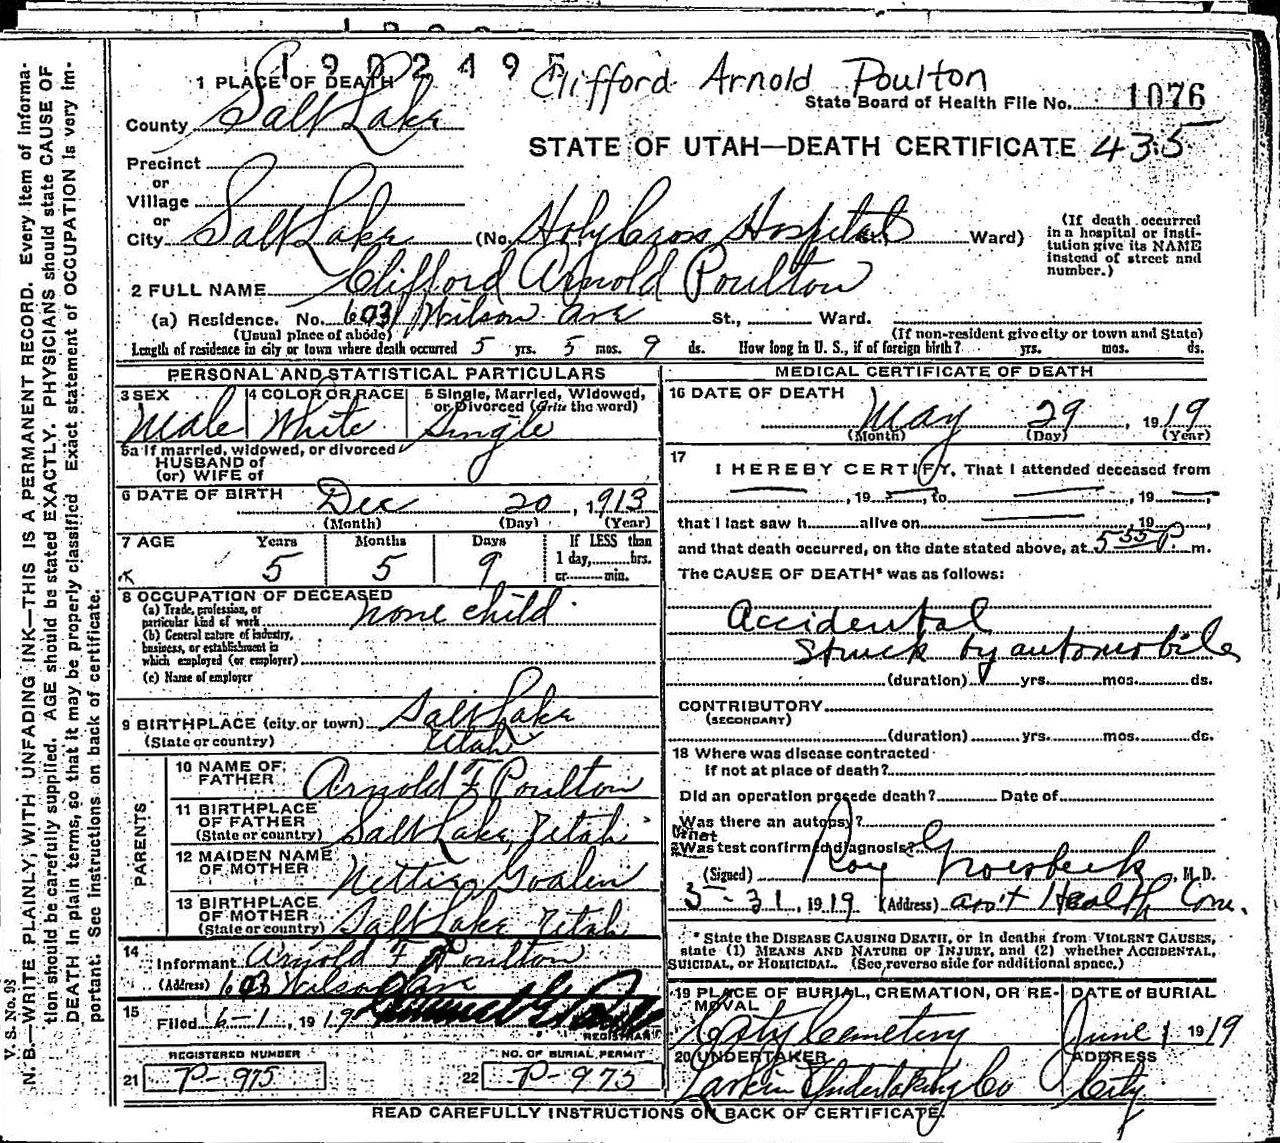 1902495
Clifford Arnold Poulton
1 PLACE OF DEATH
State Board of Health File No. 1076
County Salt Lake
STATE OF UTAH—DEATH CERTIFICATE 435
Precinct
or
Village
or
City Salt Lake (No. Holy Cross Hospital St., Ward)
(If death occurred in a hospital or institution give its NAME instead of street and number.)
2 FULL NAME Clifford Arnold Poulton
(a) Residence. No. 603 Wilson Ave St., Ward.
(Usual place of abode) (If non-resident give city or town and State)
Length of residence in city or town where death occurred 5 yrs. 5 mos. 9 ds. How long in U. S., if of foreign birth? yrs. mos. ds.
PERSONAL AND STATISTICAL PARTICULARS
3 SEX Male
4 COLOR OR RACE White
5 Single, Married, Widowed, or Divorced (Write the word) Single
5a If married, widowed, or divorced
HUSBAND of
(or) WIFE of
6 DATE OF BIRTH Dec 20, 1913
(Month) (Day) (Year)
7 AGE Years Months Days If LESS than
5 5 9 1 day, hrs.
or min.
8 OCCUPATION OF DECEASED
(a) Trade, profession, or particular kind of work none child
(b) General nature of industry, business, or establishment in which employed (or employer)
(c) Name of employer
9 BIRTHPLACE (city or town) Salt Lake
(State or country) Utah
PARENTS
10 NAME OF FATHER Arnold F Poulton
11 BIRTHPLACE OF FATHER (State or country) Salt Lake, Utah
12 MAIDEN NAME OF MOTHER Nettie Goalen
13 BIRTHPLACE OF MOTHER (State or country) Salt Lake Utah
14 Informant Arnold F Poulton
(Address) 603 Wilson Ave
15 Filed 6-1, 1919
REGISTRAR
REGISTERED NUMBER
21 P-975
NO. OF BURIAL PERMIT
22 P-975
MEDICAL CERTIFICATE OF DEATH
16 DATE OF DEATH May 29, 1919
(Month) (Day) (Year)
17 I HEREBY CERTIFY, That I attended deceased from
, 19 , to , 19 ,
that I last saw h alive on , 19 ,
and that death occurred, on the date stated above, at 5 55 P. m.
The CAUSE OF DEATH* was as follows:
Accidental
Struck by automobile
(duration) yrs. mos. ds.
CONTRIBUTORY
(SECONDARY)
(duration) yrs. mos. ds.
18 Where was disease contracted
If not at place of death?
Did an operation precede death? Date of
Was there an autopsy?
What test confirmed diagnosis?
(Signed) Roy Groesbeck, M. D.
5-31, 1919 (Address) ass't Health Com.
* State the DISEASE CAUSING DEATH, or in deaths from VIOLENT CAUSES,
state (1) MEANS AND NATURE OF INJURY, and (2) whether ACCIDENTAL,
SUICIDAL, or HOMICIDAL. (See reverse side for additional space.)
19 PLACE OF BURIAL, CREMATION, OR REMOVAL City Cemetery
DATE of BURIAL June 1 1919
20 UNDERTAKER Larkin Undertaking Co
ADDRESS City
READ CAREFULLY INSTRUCTIONS ON BACK OF CERTIFICATE.
V. S. No. 98
N. B.—WRITE PLAINLY, WITH UNFADING INK—THIS IS A PERMANENT RECORD. Every item of information should be carefully supplied. AGE should be stated EXACTLY. PHYSICIANS should state CAUSE OF DEATH in plain terms, so that it may be properly classified. Exact statement of OCCUPATION is very important. See instructions on back of certificate.